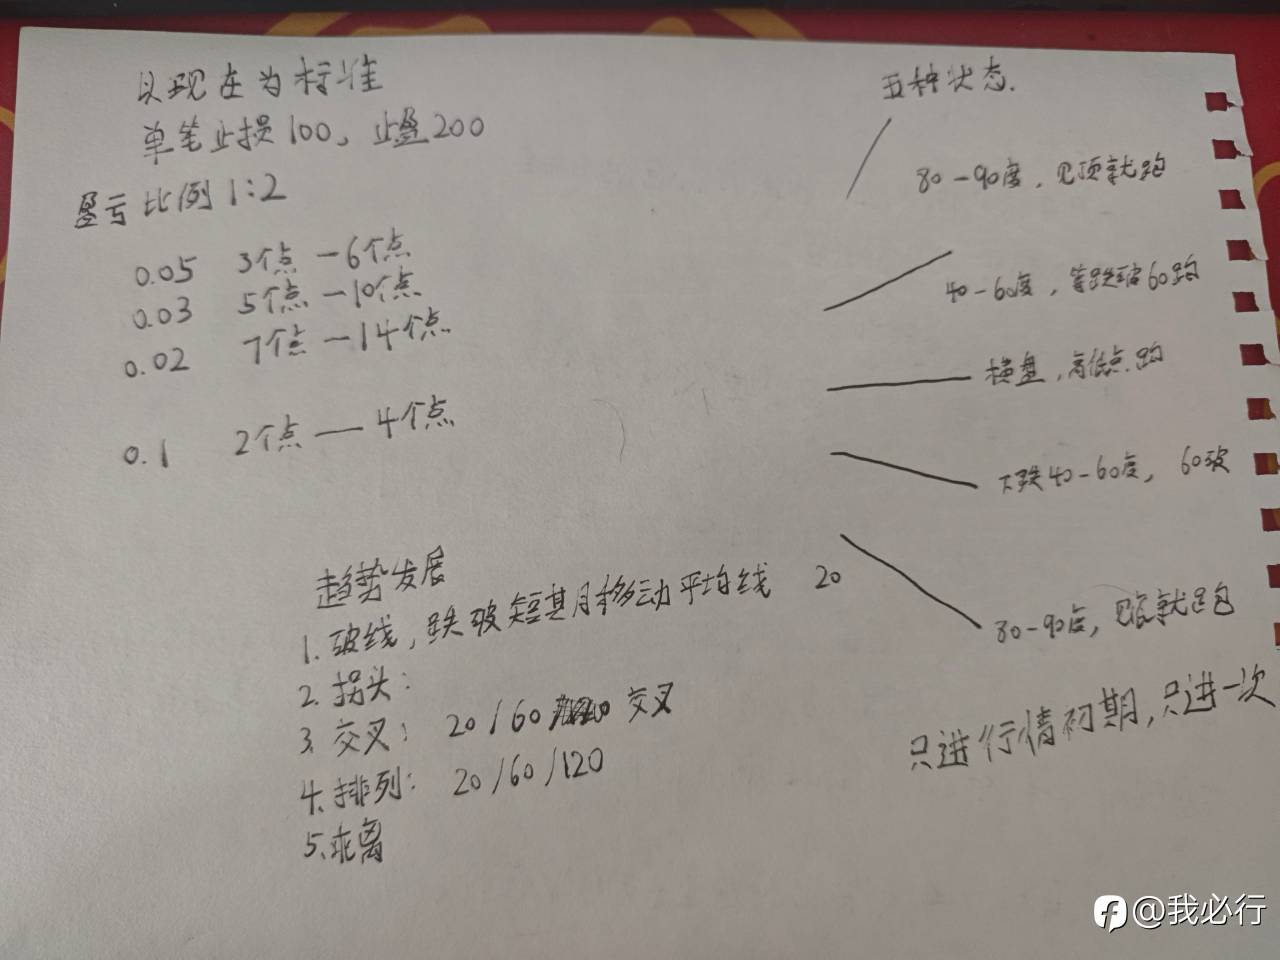 以现在为标准
单笔止损100，止盈200
盈亏比例1:2
0.05 3个点-6个点
0.03 5个点-10个点
0.02 7个点-14个点
0.1 2个点—4个点
趋势发展
1. 破线，跌破短期移动平均线 20
2. 拐头：
3. 交叉： 20/60 交叉
4. 排列： 20/60/120
5. 乖离
五种状态.
80-90度，见顶就跑
40-60度，等跌破60跑
横盘，高低点跑
下跌40-60度， 60破
80-90度，见底就跑
只进行情初期，只进一次
@我必行